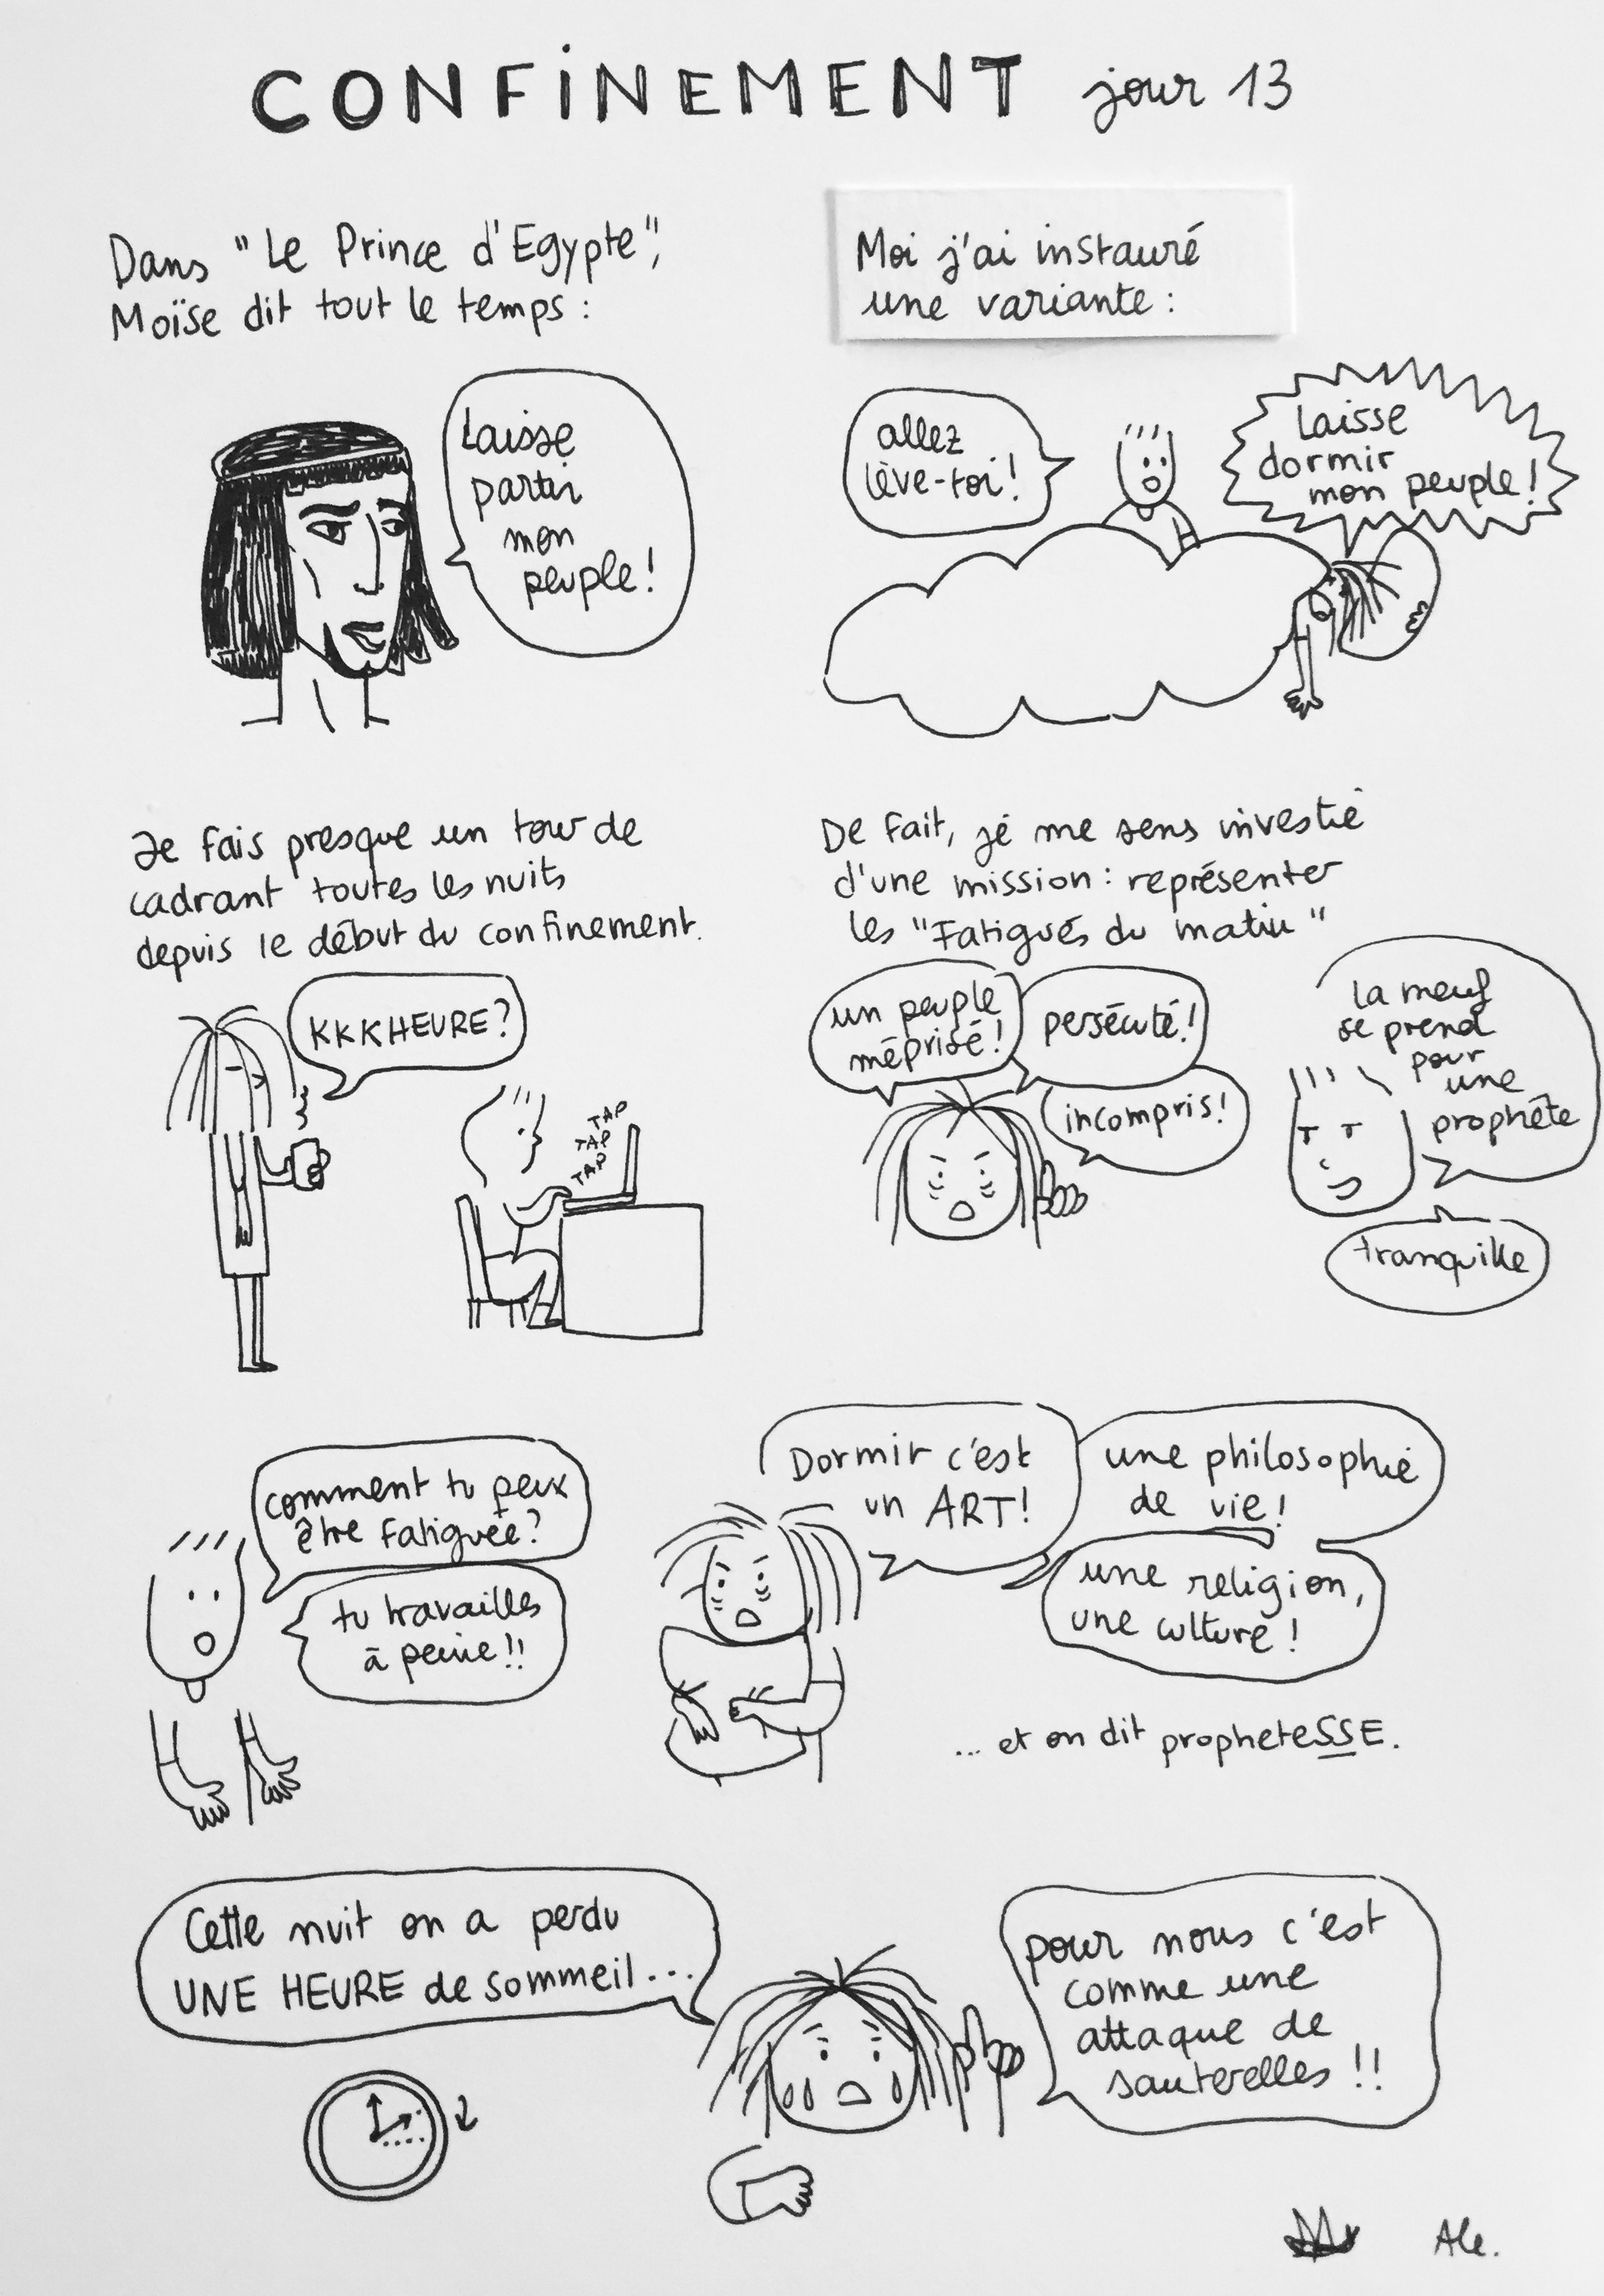 CONFINEMENT jour 13
Dans "Le Prince d'Egypte",
Moïse dit tout le temps :
Laisse
partir
mon
peuple !
Moi j'ai instauré
une variante :
allez
lève-toi !
Laisse
dormir
mon peuple !
Je fais presque un tour de
cadrant toutes les nuits
depuis le début du confinement.
KKKHEURE ?
TAP
TAP
TAP
De fait, je me sens investie
d'une mission : représenter
les "Fatigués du matin"
un peuple
méprisé !
persécuté !
incompris !
la meuf
se prend
pour
une
prophète
tranquille
comment tu peux
être fatiguée ?
tu travailles
à peine !!
Dormir c'est
un ART !
une philosophie
de vie !
une religion,
une culture !
... et on dit propheteSSE.
Cette nuit on a perdu
UNE HEURE de sommeil ...
pour nous c'est
comme une
attaque de
sauterelles !!
Ale.